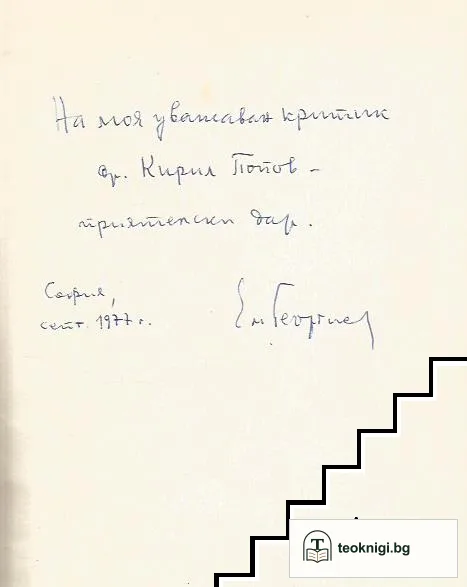 На моя уважаван критик
др. Кирил Попов –
приятелски дар.
София,
септ. 1977 г.
Ем Георгиев
teoknigi.bg